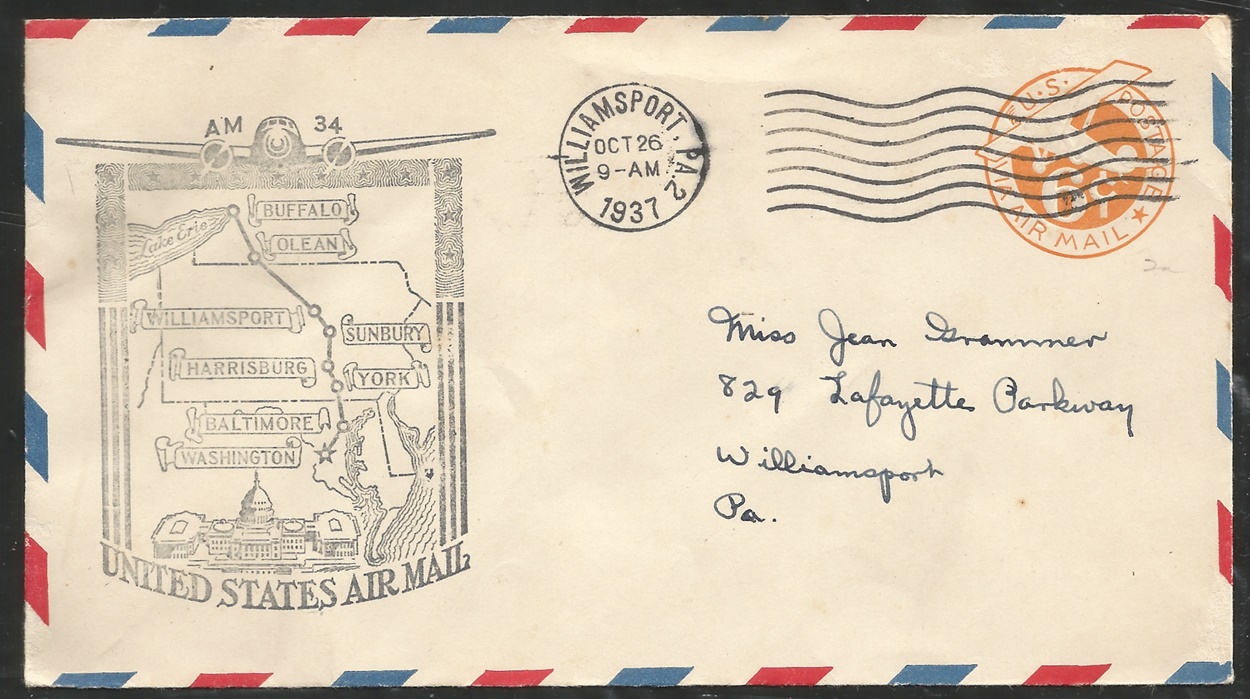 AM 34
BUFFALO
OLEAN
Lake Erie
WILLIAMSPORT
SUNBURY
HARRISBURG
YORK
BALTIMORE
WASHINGTON
UNITED STATES AIR MAIL
WILLIAMSPORT, PA. 2
OCT 26
9-AM
1937
U.S. POSTAGE
6¢
AIR MAIL
Miss Jean Grammer
829 Lafayette Parkway
Williamsport
Pa.